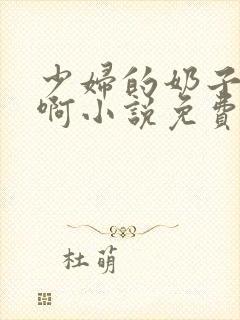 少婦的奶子
啊小說免費
杜萌